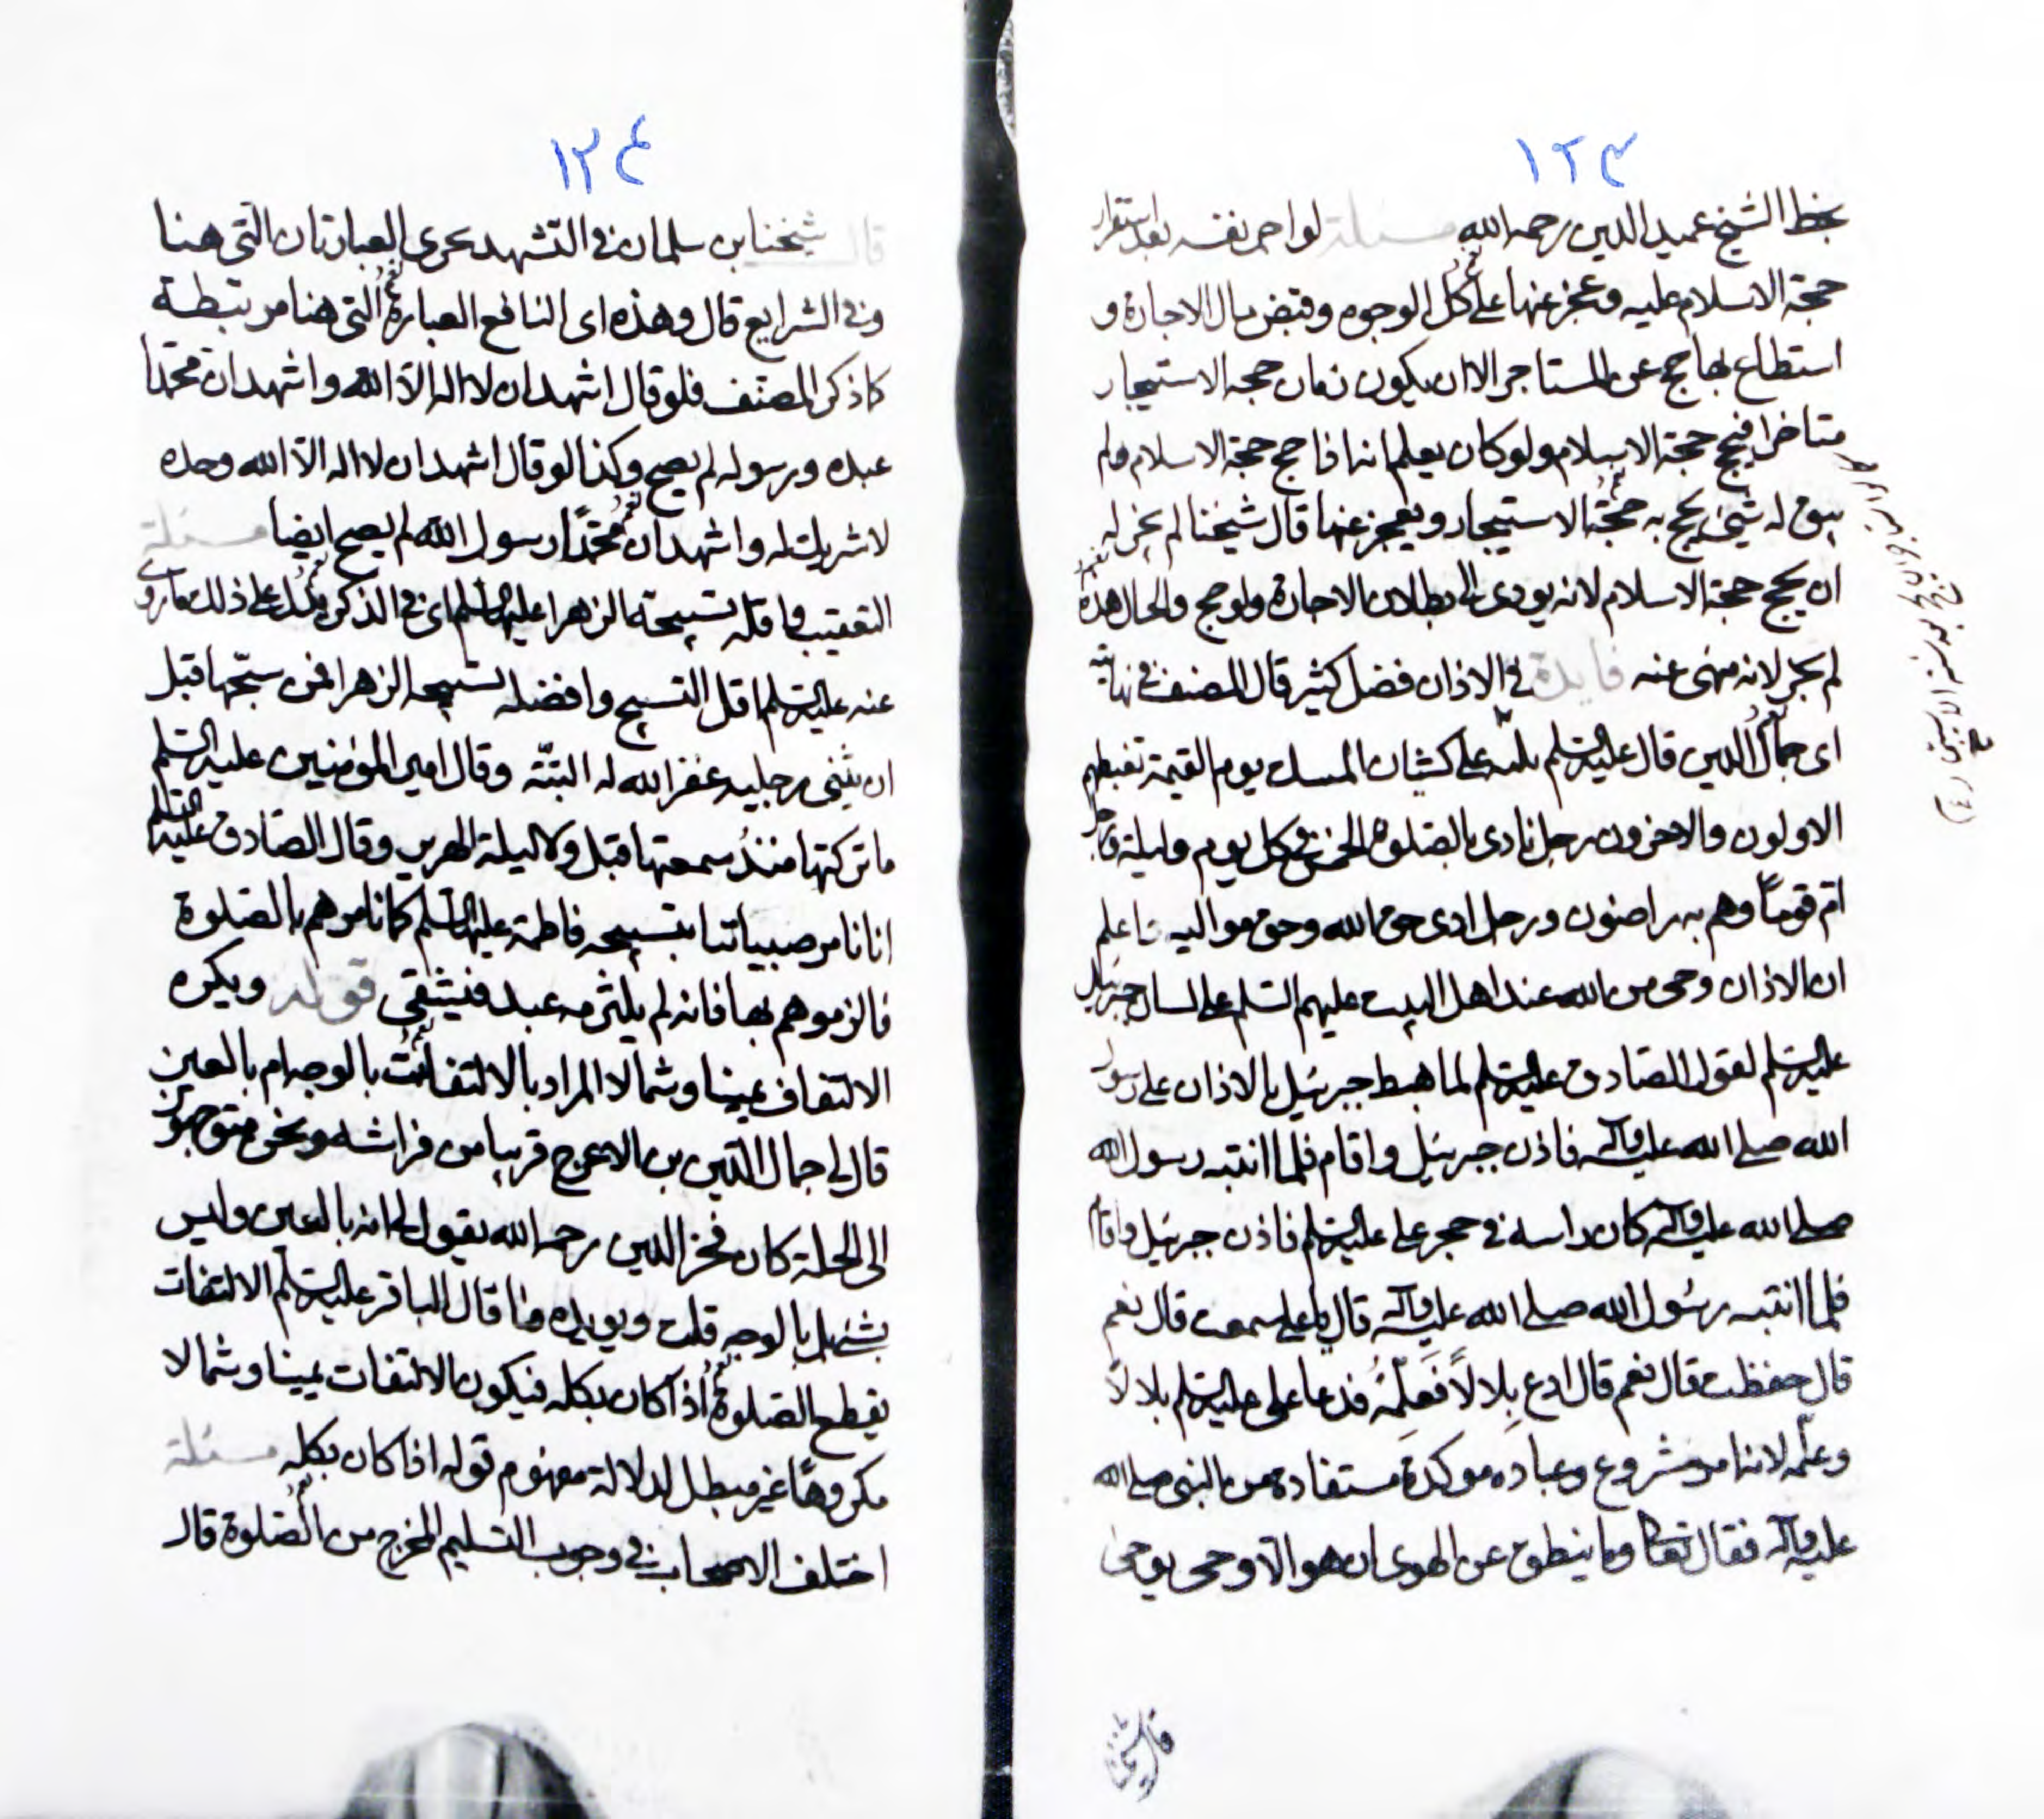 ١٢٣
بخط الشيخ عميد الدين رحمه الله مسئلة لو اجر نفسه بعد استقرار
حجة الاسلام عليه وعجز عنها على كل الوجوه وقبض مال الاجارة و
استطاع بها حج عن المستاجر الا ان يكون زمان حجه الاستيجار
متاخرا فيحج حجة الاسلام ولو كان يعلم انه اذا حج حجة الاسلام ولم
يبق له شيئ يحج به حجة الاستيجار ويعجز عنها قال شيخنا لم يجز له
ان يحج حجة الاسلام لانه يودى الى بطلان الاجارة ولو حج والحال هذه
لم يجز لانه منهى عنه فايدة فى الاذان فضل كثير قال المصنف فى نهايته
اى جمال الدين قال عليه السلم ثلثه على كثبان المسك يوم القيمة تغبطهم
الاولون والاخرون رجل نادى بالصلوة الخمس فى كل يوم وليلة ورجل
ام قوما وهم به راضون ورجل ادى حق الله وحق مواليه اعلم
ان الاذان وحى من الله عند اهل البيت عليهم السلم على لسان جبرئيل
عليه السلم لقول الصادق عليه السلم لما هبط جبرئيل بالاذان على رسول
الله صلى الله عليه وآله فاذن جبرئيل واقام فلما انتبه رسول الله
صلى الله عليه وآله كان راسه فى حجر على عليه السلم فاذن جبرئيل واقام
فلما انتبه رسول الله صلى الله عليه وآله قال يا على سمعت قال نعم
قال حفظت قال نعم قال ادع بلالًا فعلمه فدعا على عليه السلم بلالًا
وعلمه لاننا مشروع وعباده موكدة مستفادة من النبى صلى الله
عليه وآله فقال تعالى وما ينطق عن الهوى ان هو الا وحى يوحى
قال شيخنا
١٢٤
قال شيخنا ابن سلمان فى التشهد يجرى العبارتان التى هنا
وفى الشرايع قال وهذه اى النافع العبارة التى هنا مرتبطة
كما ذكر المصنف فلو قال اشهد ان لا اله الا الله واشهد ان محمدا
عبده ورسوله لم يصح وكذا لو قال اشهد ان لا اله الا الله وحده
لا شريك له واشهد ان محمدًا رسول الله لم يصح ايضا مسئلة
التعقيب واقله تسبيحة الزهرا عليها السلم اى فى الذكر يدل على ذلك ما روى
عنه عليه السلم اقل التسبيح وافضله تسبيحه الزهرا فمن سبحها قبل
ان يثنى رجليه غفر الله له البتة وقال امير المومنين عليه السلم
ما تركتها منذ سمعتها قبل ولا ليلة الهرير وقال الصادق عليه السلم
انا نامر صبياننا بتسبيحه فاطمة عليها السلم كما نامرهم بالصلوة
فالزموهم بها فانه لم يلزمه عبد فيشقى قوله ويكره
الالتفات يمينا وشمالا المراد بالالتفات بالوجه ام بالعين
قال لى جمال الدين بن الاعرج قريبا من فراشه ونحن متوجهون
الى الحلة كان فخر الدين رحمه الله يقول لى انه بالعين وليس
بشئ بل بالوجه قلت ويويده ما قال الباقر عليه السلم الالتفات
يقطع الصلوة اذا كان بكله فيكون الالتفات يمينا وشمالا
مكروهًا غير مبطل لدلالة مفهوم قوله اذا كان بكله مسئلة
اختلف الاصحاب فى وجوب التسليم المخرج من الصلوة قال